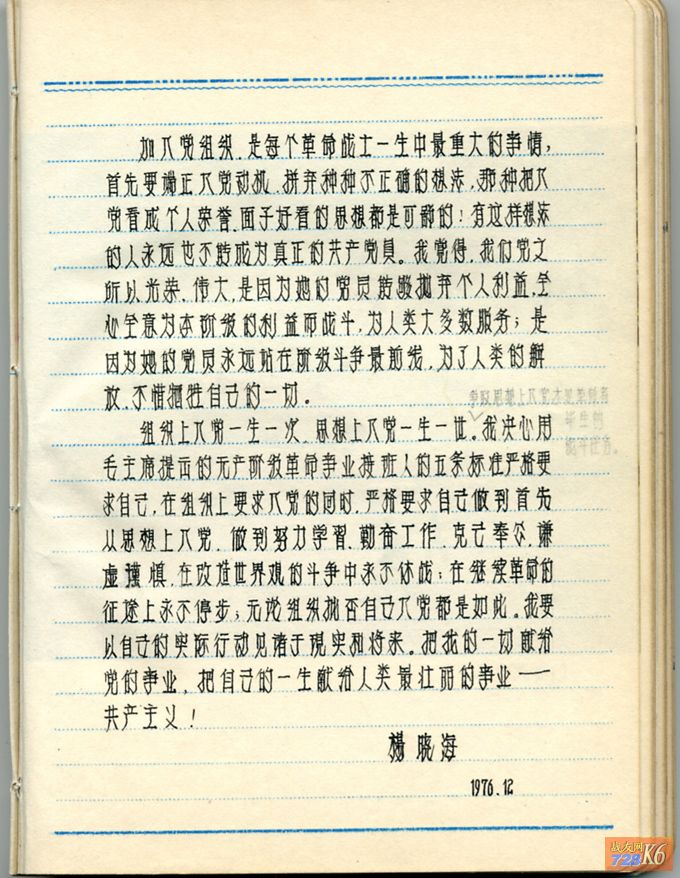 加入党组织，是每个革命战士一生中最重大的事情，
首先要端正入党动机，拼弃种种不正确的想法，那种把入
党看成个人荣誉、面子好看的思想都是可鄙的！有这样想法
的人永远也不能成为真正的共产党员。我觉得，我们党之
所以光荣、伟大，是因为她的党员能够抛弃个人利益，全
心全意为本阶级的利益而战斗，为人类大多数服务；是
因为她的党员永远站在阶级斗争最前线，为了人类的解
放、不惜牺牲自己的一切。
争取思想上入党
毕生的
组织上入党一生一次，思想上入党一生一世。我决心用
毛主席提出的无产阶级革命事业接班人的五条标准严格要
求自己，在组织上要求入党的同时，严格要求自己做到首先
从思想上入党，做到努力学習、勤奋工作、克己奉公、谦
虚谨慎，在改造世界观的斗争中永不休战；在继续革命的
征途上永不停步；无论组织批否自己入党都是如此。我要
以自己的实际行动见诸于現实和将来。把我的一切献给
党的事业，把自己的一生献给人类最壮丽的事业——
共产主义！
楊晓海
1976.12
战友网
728K6